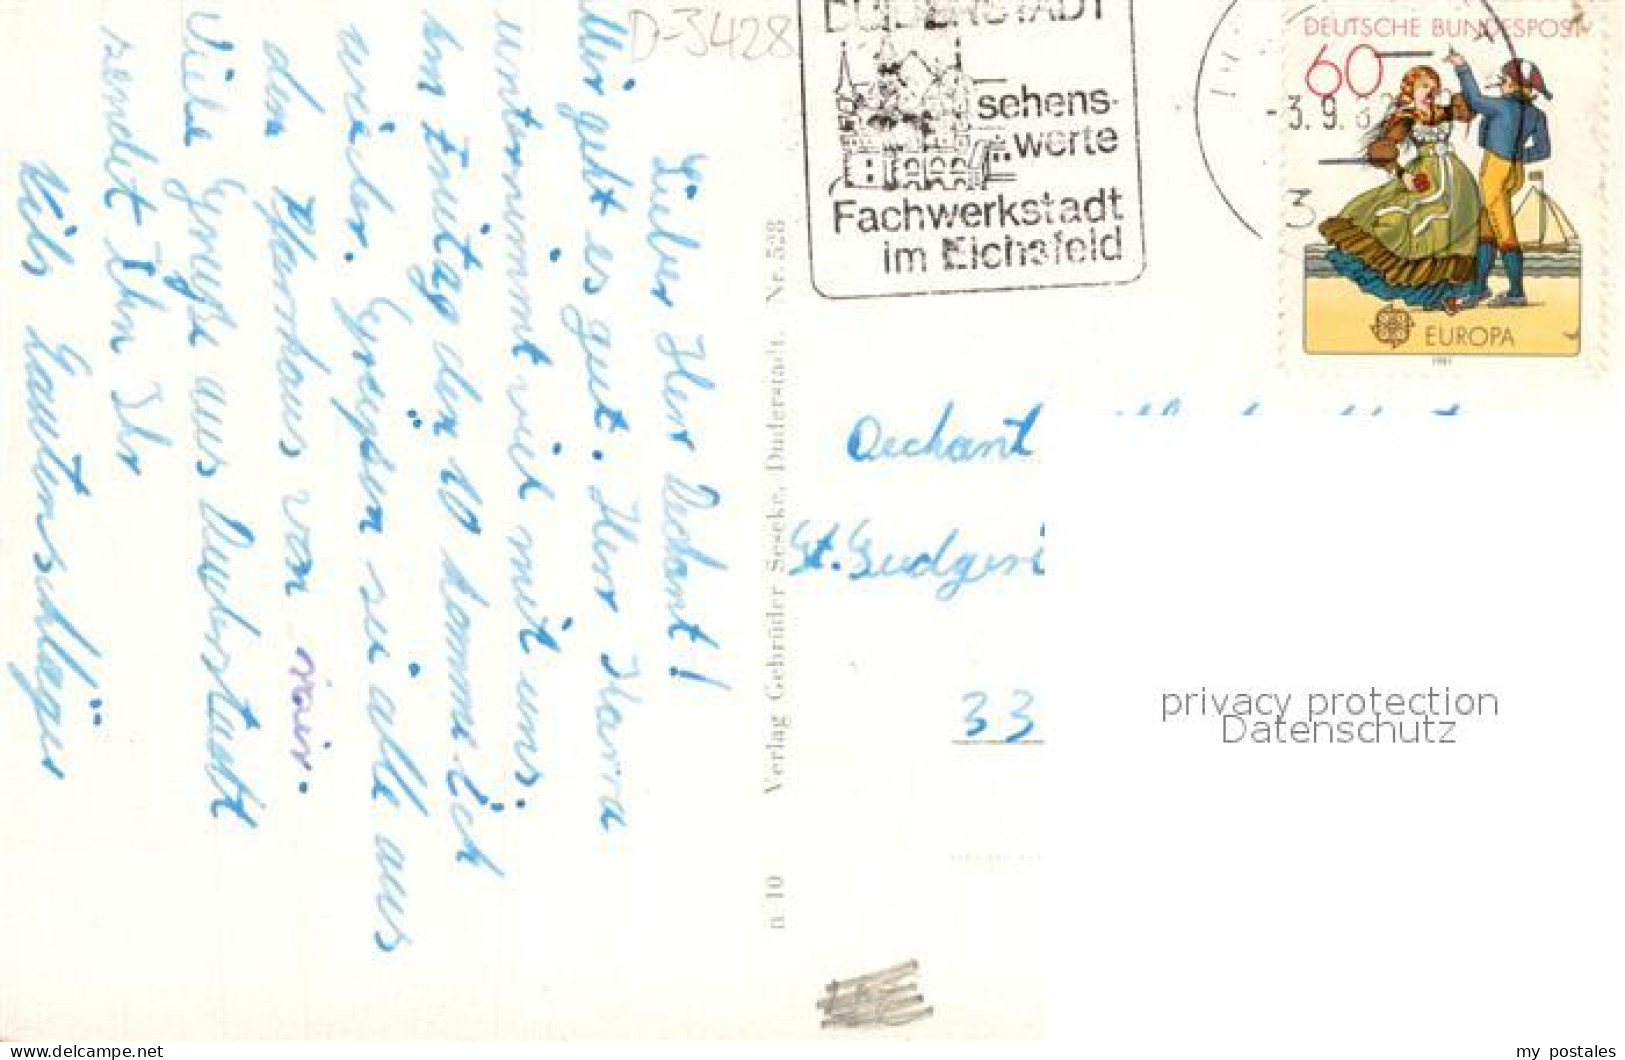 Lieber Herr Dechant!
Mir geht es gut. Herr
unternimmt viel mit uns.
Am Freitag den 10 komme ich
wieder. Grüßen sie alle aus
dem Pfarrhaus von mir.
Viele Grüße aus Duderstadt
sendet Ihn Ihr
Nils Lautenschläger
D-3428
Verlag Gebrüder Seseke, Duderstadt. Nr. 528
n 10
DUDERSTADT
sehens-
werte
Fachwerkstadt
im Eichsfeld
DEUTSCHE BUNDESPOST
60
-3.9.82
3
EUROPA
1981
Dechant
St.
33
privacy protection
Datenschutz
delcampe.net
my_postales